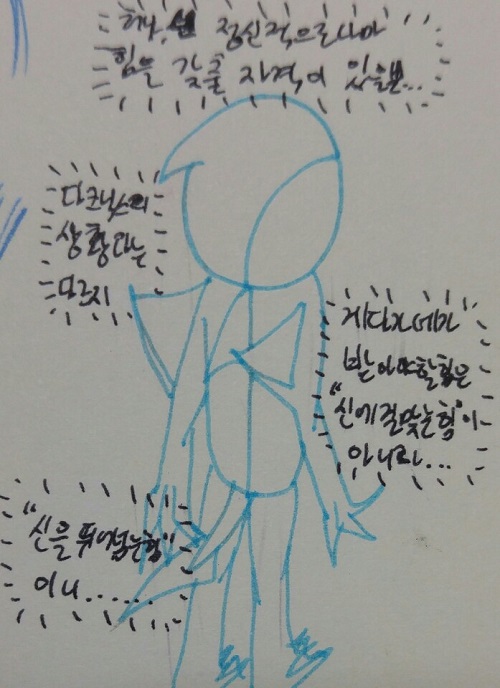 정신적으로나마
힘을 갖출 자격이 있을뿐...
다크닉스의
상황과는
모르지
게다가 네가
받아야할힘은
"신에걸맞는힘"이
아니라...
"신을 뛰어넘는힘"
이니......